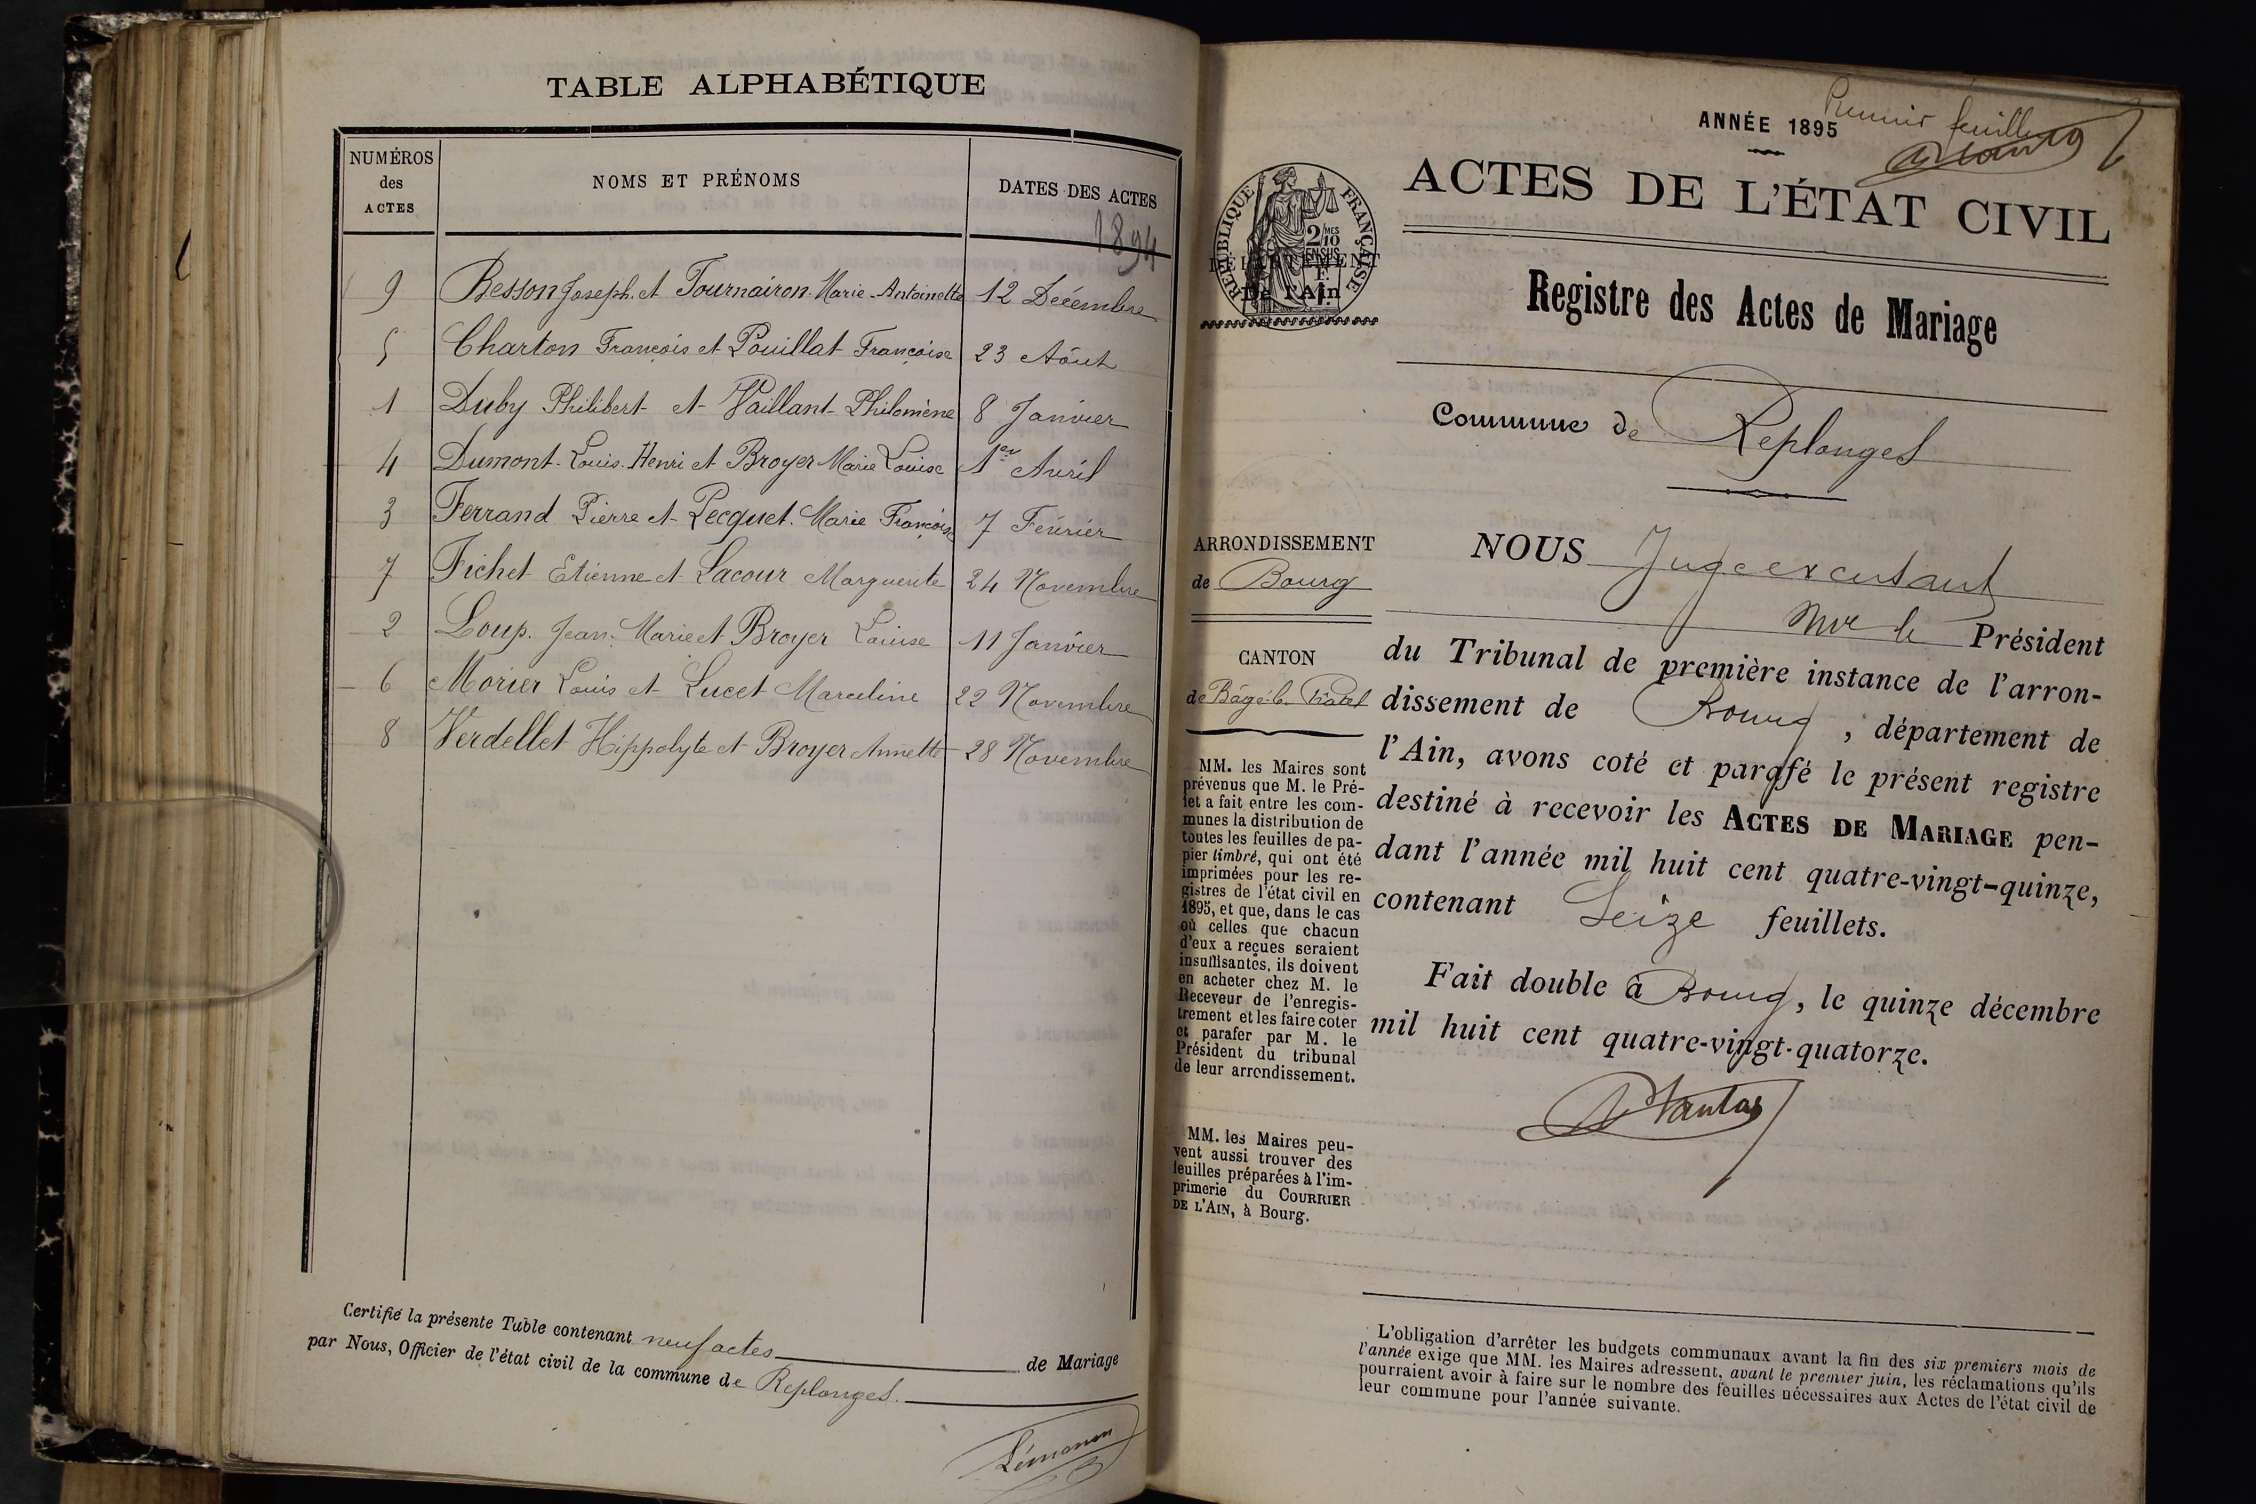 TABLE ALPHABÉTIQUE
NUMÉROS
des
ACTES
NOMS ET PRÉNOMS
DATES DES ACTES
1894
9 Besson Joseph et Tournairon Marie-Antoinette 12 Décembre
5 Charton François et Pouillat Françoise 23 Aôut
1 Duby Philibert et Vaillant Philomène 8 Janvier
4 Dumont Louis-Henri et Broyer Marie Louise 1er Avril
3 Ferrand Pierre et Pecquet Marie Françoise 7 Février
7 Fichet Etienne et Lacour Marguerite 24 Novembre
2 Loup Jean-Marie et Broyer Louise 11 Janvier
6 Morier Louis et Lucet Marceline 22 Novembre
8 Verdellet Hippolyte et Broyer Annette 28 Novembre
Certifié la présente Table contenant neuf actes de Mariage
par Nous, Officier de l'état civil de la commune de Replonges
Premier feuillet
ANNÉE 1895
ACTES DE L'ÉTAT CIVIL
RÉPUBLIQUE FRANÇAISE
2 MES
10
EN SUS
DÉPARTEMENT
De l'Ain
Registre des Actes de Mariage
Commune de Replonges
ARRONDISSEMENT
de Bourg
CANTON
de Bâgé-le-Châtel
MM. les Maires sont
prévenus que M. le Pré-
fet a fait entre les com-
munes la distribution de
toutes les feuilles de pa-
pier timbré, qui ont été
imprimées pour les re-
gistres de l'état civil en
1895, et que, dans le cas
où celles que chacun
d'eux a reçues seraient
insuffisantes, ils doivent
en acheter chez M. le
Receveur de l'enregis-
trement et les faire coter
et parafer par M. le
Président du tribunal
de leur arrondissement.
MM. les Maires peu-
vent aussi trouver des
feuilles préparées à l'im-
primerie du COURRIER
DE L'AIN, à Bourg.
NOUS Juge
Mr le Président
du Tribunal de première instance de l'arron-
dissement de Bourg, département de
l'Ain, avons coté et parafé le présent registre
destiné à recevoir les ACTES DE MARIAGE pen-
dant l'année mil huit cent quatre-vingt-quinze,
contenant Seize feuillets.
Fait double à Bourg, le quinze décembre
mil huit cent quatre-vingt-quatorze.
L'obligation d'arrêter les budgets communaux avant la fin des six premiers mois de
l'année exige que MM. les Maires adressent, avant le premier juin, les réclamations qu'ils
pourraient avoir à faire sur le nombre des feuilles nécessaires aux Actes de l'état civil de
leur commune pour l'année suivante.